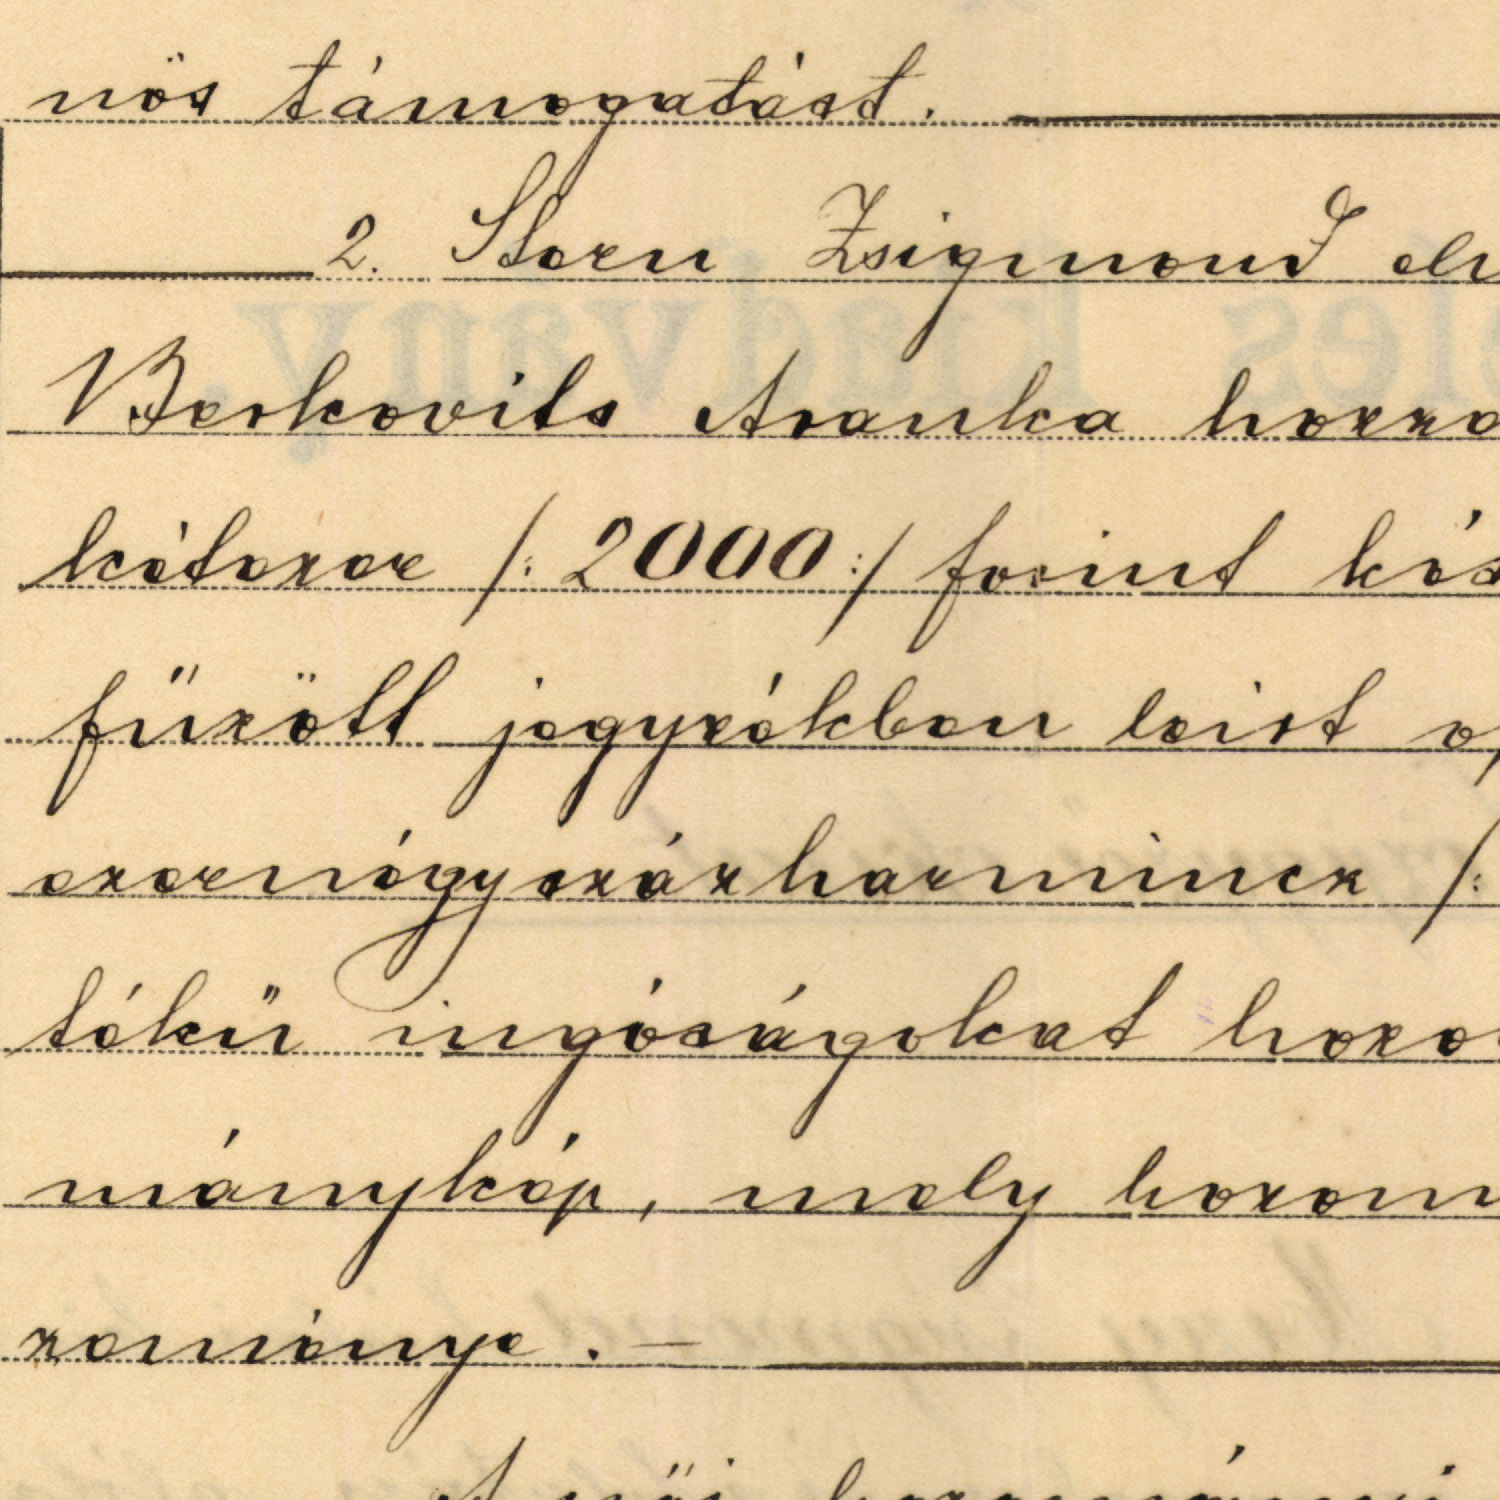 nös támogatást.
2. Stern Zsigmond el
Berkovits Aranka hozzá
kétezer /: 2000 :/ forint kés
füzött jegyzékben leirt
ezernégyszázharmincz /:
tékü ingóságokat hozo
mánykép, mely hozom
zománya. —
A női hozományi